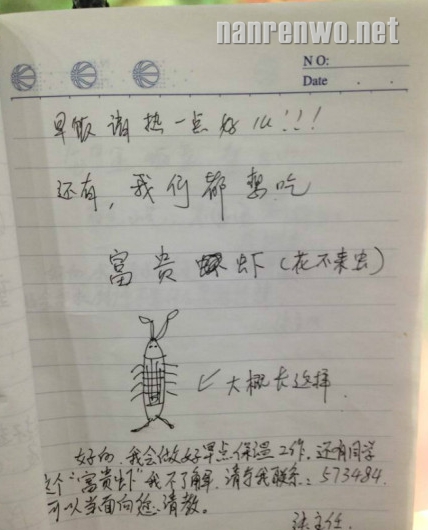 nanrenwo.net
N O:
Date . .
早饭 热一点好么!!!
还有,我们都想吃
富贵虾(花不来虫)
大概长这样
好的,我会做好早点保温工作。还有同学
这个"富贵虾"我不了解,请与我联系:573484.
可以当面向您请教。
主任